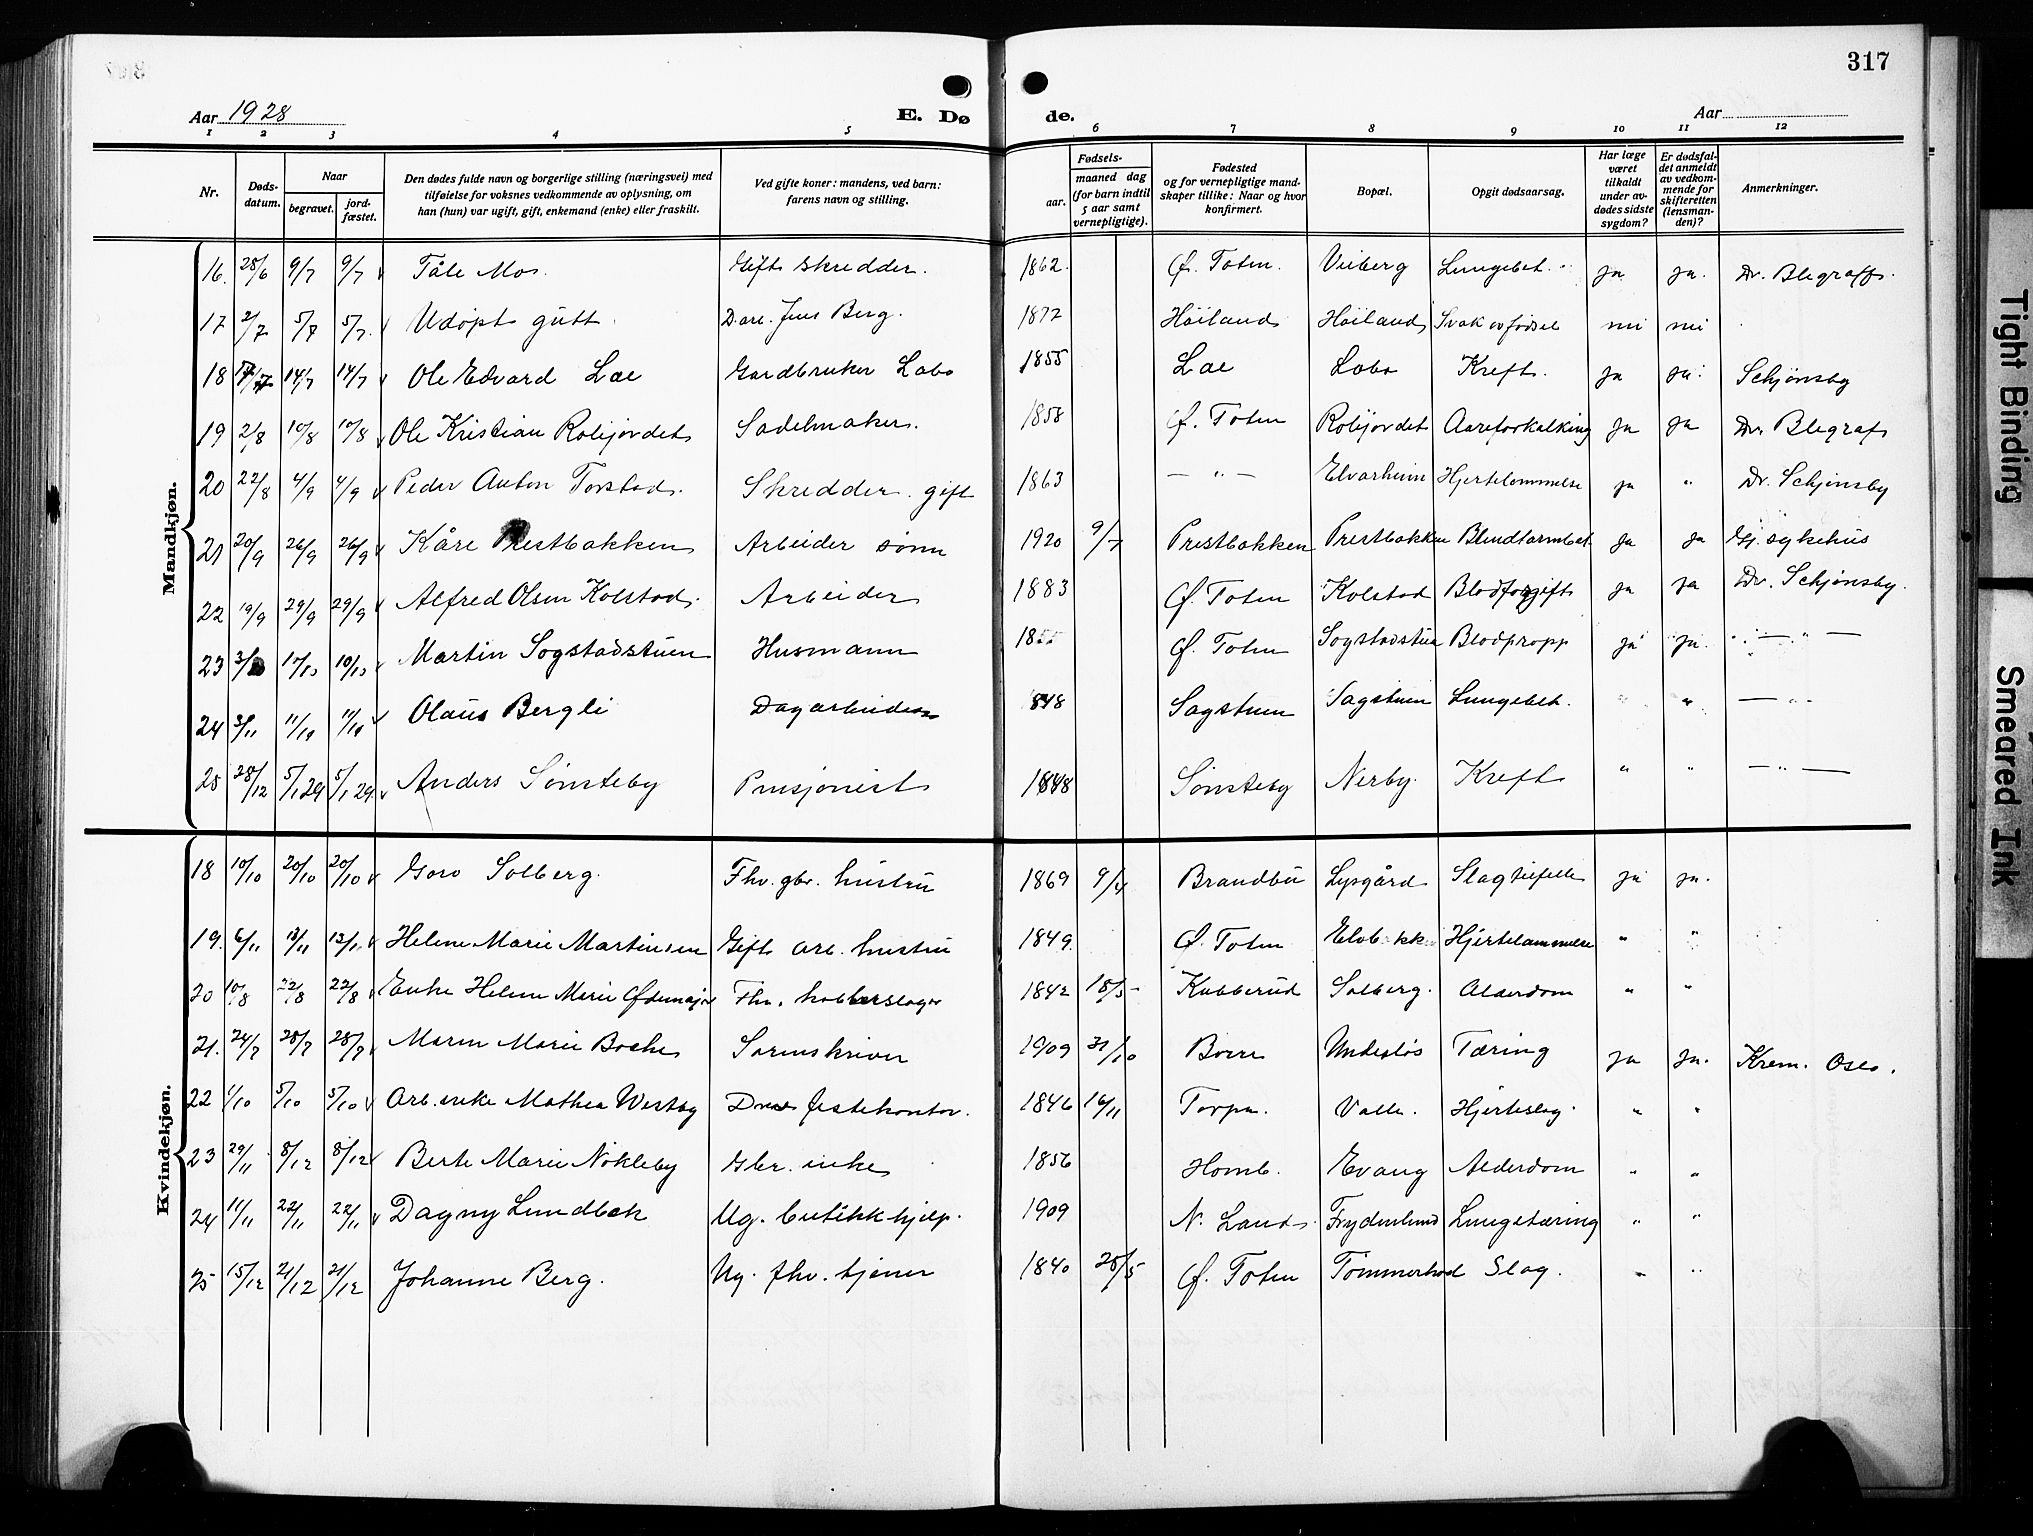 317
Aar 1928
E. Døde.
Aar
1 2 3 4 5 6 7 8 9 10 11 12
Nr.
Døds-datum.
Naar
begravet.
jord-fæstet.
Den dødes fulde navn og borgerlige stilling (næringsvei) med
tilføielse for voksnes vedkommende av oplysning, om
han (hun) var ugift, gift, enkemand (enke) eller fraskilt.
Ved gifte koner: mandens, ved barn:
farens navn og stilling.
Fødsels-
aar.
maaned dag
(for barn indtil
5 aar samt
vernepligtige).
Fødested
og for vernepligtige mand-
skaper tillike: Naar og hvor
konfirmert.
Bopæl.
Opgit dødsaarsag.
Har læge
været
tilkaldt
under av-
dødes sidste
sygdom?
Er dødsfal-
det anmeldt
av vedkom-
mende for
skifteretten
(lensman-
den)?
Anmerkninger.
Mandkjøn.
16. 28/6 9/7 9/7 Tåle Mos. Gift Skredder. 1862. Ø. Toten. Viiberg Lungebet. ja ja. Dr. Blegraffs.
17 2/7 5/7 5/7. Udøpt gutt. Jens Berg. 1872 Høiland Høiland Svak av fødsel nei nei
18 14/7 14/7 Ole Edvard Lae Gardbruker Labo 1855 Lae Labo Kreft. ja ja. Schjønsby
19 2/8 10/8 10/8 Ole Kristian Robijordet Sadelmaker. 1858 Ø. Toten Robijordet Aareforkalking ja ja Dr. Blegraf
20 22/8 4/9 4/9 Peder Anton Torstad. Skredder. gift 1863 — " — Elvarheim Hjertelammelse ja " Dr. Schjønsby
21 20/9 26/9 26/9 Kåre Prestbakken Arbeider sønn 1920 9/7 Prestbakken Prestbakken Blindtarmbet. ja ja Gj. sykehus
22 19/9 29/9 29/9 Alfred Olsen Kolstad. Arbeider 1883 Ø. Toten Kolstad Blodforgift ja ja Dr. Schjønsby.
23 10/10 Martin Sogstadstuen Husmann Ø. Toten Sogstadstua Blodpropp ja ja. — " —
24 3/11 11/10 11/10 Olaus Bergli Dagarbeider 848 Sagstuen Sagstuen Lungebet. " " — " -
25 28/12 5/1 29 5/1 29 Anders Sønsteby Pensjonist 1848 Sønsteby Nerby. Kreft " " — " —
Kvindekjøn.
18 10/10 20/10 20/10 Goro Solberg. Fhv. gbr. hustru 1869 9/4 Brandbu Lysgård Slagtilfelle ja ja.
19. 6/11 13/11 13/11 Helene Marie Martinsen Gift arb. hustru 1849. Ø. Toten Hjertelammelse " "
20 10/8 22/8 22/8 Enke Helene Marie Fhv. kobberslager 1842 18/5 Kubberud Solberg. Alderdom " "
21. 24/7 28/7 28/7 Maren Marie Bache Sorenskriver 1909 31/10 Borre Undesløs Tæring ja ja. Krem. Oslo.
22 1/10 5/10 5/10 Arb. enke Mathea Westby 1846 16/11 Torpa. Valle. Hjerteslag. " "
23 29/11 8/12 8/12 Berte Marie Nøkleby Gbr. enke 1856 Homb. Evang Alderdom " "
24 11/11 22/11 22/11 Dagny Lundbek Ug. butikkhjelp. 1909 N. Land. Frydenlund Lungetæring " "
25 15/12 21/12 21/12 Johanne Berg. Ug. fhv. tjener 1840 28/5 Ø. Toten Tømmerhod Slag. " "
Tight Binding
Smeared Ink